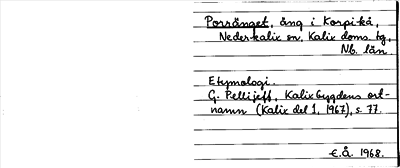 Porränget, äng i Korpikå,
Nederkalix sn, Kalix doms. tg,
Nb. län.
Etymologi
G. Pellijeff, Kalixbygdens ort-
namn (Kalix del 1, 1967), s. 77.
E.Å. 1968.